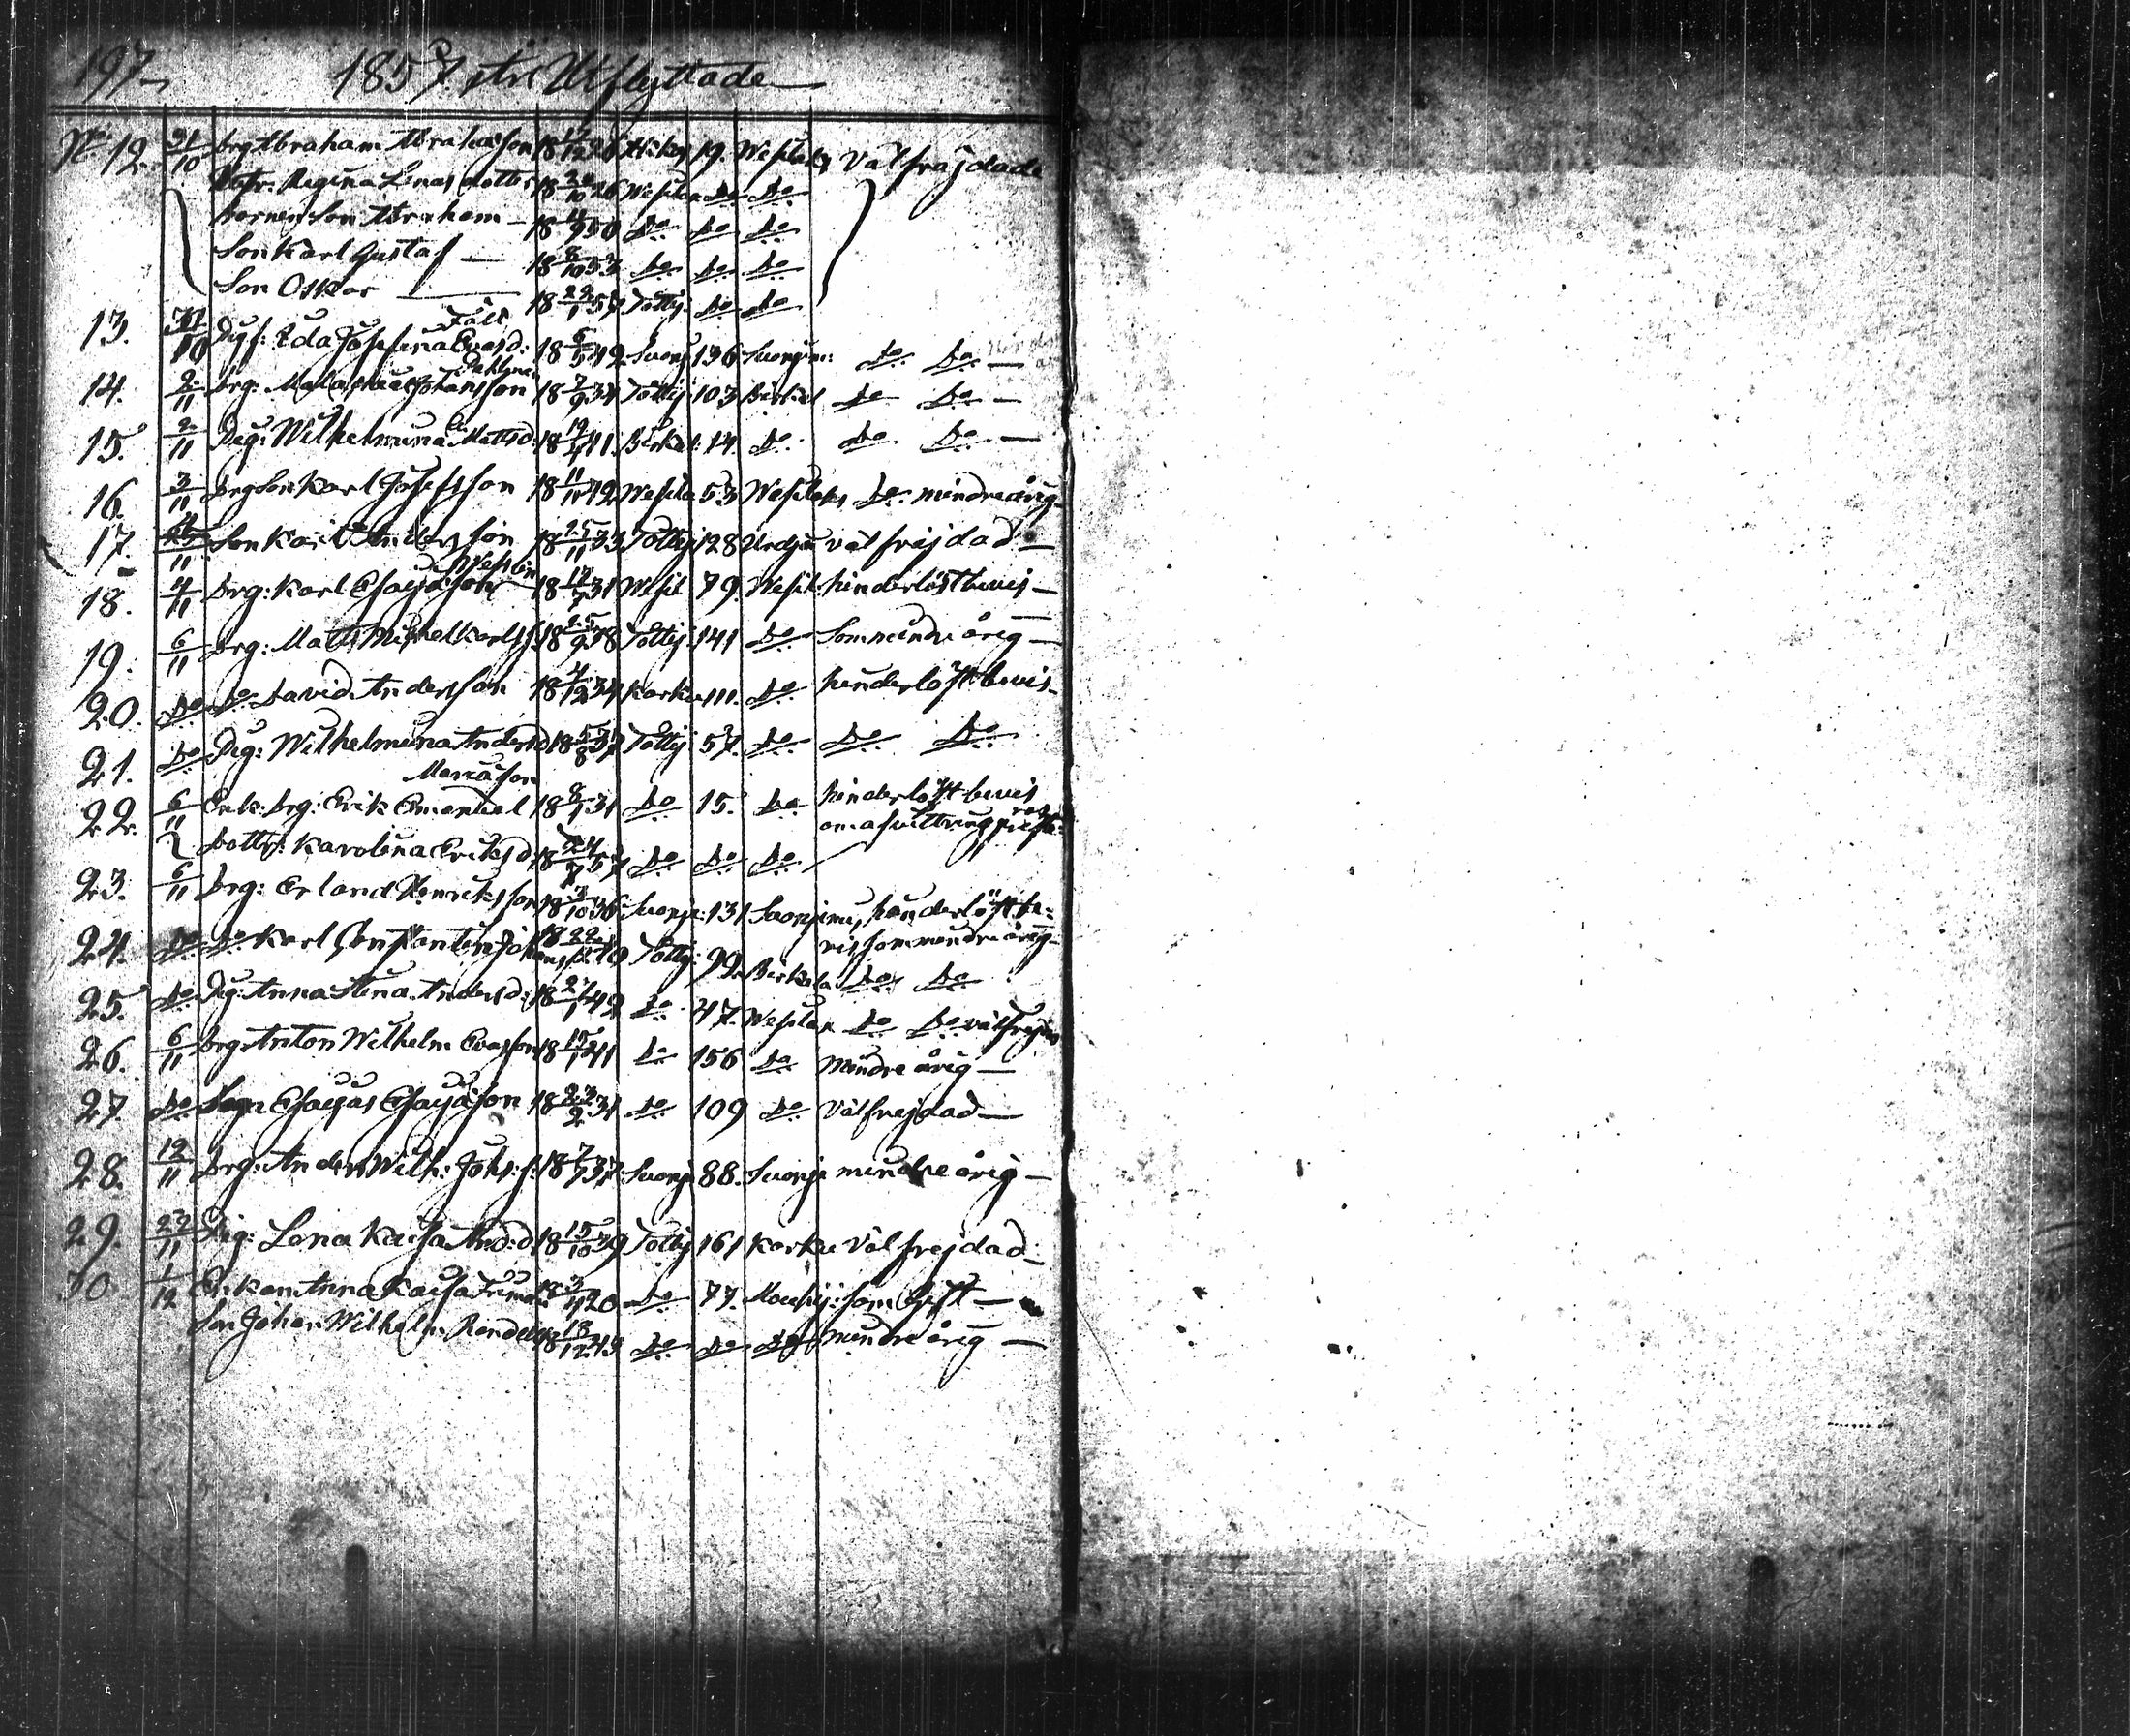 197
1857. års Utflyttade
No. 12. 31/10 drg Abraham Abrahamsson 18 12/12 26 19. Wesilaks Välfräjdade
Hustr. Regina Linas dotter 18 20/10 26 Wesila Do Do
barnen Son Abraham — 18 4/9 50 Do Do Do
Son Karl Gustaf — 18 8/10 53 Do Do Do
Son Oskar — 18 22/1 57 Tottij. Do Do
Fält
13. 31/10 Pig: Eda Josefina Evasd: 18 6/5 42 Suonj 136 Suonjem: Do Do —
Dahlman
14. 2/11 drg: Malakias Johansson 18 7/9 34 Tottij 103 Birkal Do Do —
15. 2/11 Pig: Wilhelmina Mattsd: 18 19/4 41. Birkal: 14. Do Do Do —
16. 3/11 drg Son Karl Josefsson 18 11/11 42 Wesila 53 Wesilaks Do mindreårig
17. /11 Son Karl Andersson 18 25/11 33 Tottij 128 Urdja välfräjdad —
18. 4/11 drg: Karl Esaijasson 18 17/7 31 Wesil 79. Wesil: hinderlöst bevis —
19. 6/11 drg: Matts Mickel Karlss: 18 25/9 38 Tottij. 141 Do Som mindreårig —
20. Do Do David Andersson 18 4/12 34 Karku 111. Do hinderlöst bevis
21. Do Pig: Wilhelmina Andersd 18 5/8 37 Tottij 57. Do Do Do
Mariasson
22. 6/11 Enk: drg: Erik Emanuel 18 8/1 31 Do 15. Do hinderlöst bevis
om afvittring
dotter: Karolina Eriksd: 18 24/7 57 Do Do Do
23. 6/11 drg: Erland Henriksson 18 3/10 36 Suonje: 131 Suonjemi, hinderlöst be=
vis som mindreårig
24. Do Do Karl Constantin Johansson 18 Tottij: 99. Birkala Do Do
25. Do Pig: Anna Stina Andersd: 18 27/1 42 Do 47. Wesilax Do Do välfrejdad
26. 6/11 drg: Anton Wilhelm Evasson 18 15/1 41 Do 156 Do Mindreårig —
27. Do Esaijas Esaijasson 18 23/2 31 Do 109 Do Välfrejdad —
28. 12/11 drg: Anders Wilh: Johs: s: 18 7/7 37. Suonj 88. Suonje mindreårig —
29. 22/11 Pig: Lena Kaisa And: d 18 15/10 39 Tottij 161 Karku Välfrejdad
30. 1/12 Enkan Anna Kaisa 18 3/4 20 Do 77. Mouhij: som Gift —
Son Johan Wilhelm 18 13/12 43 Do Do Do mindreårig —